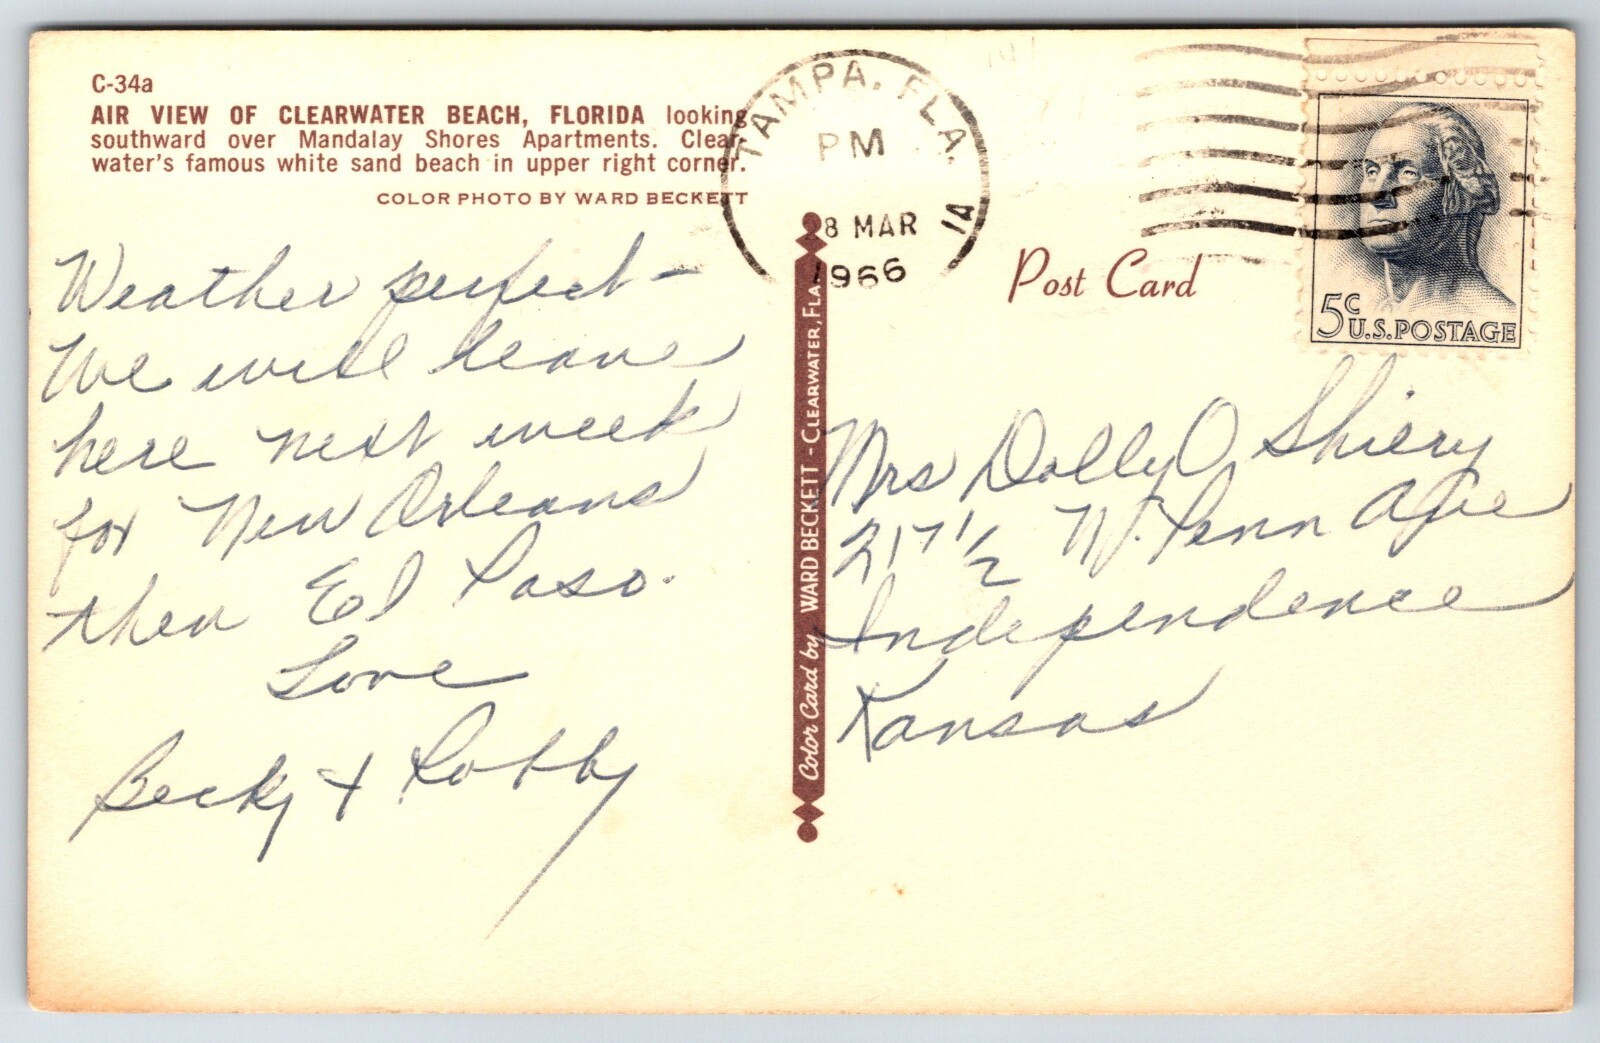 C-34a
AIR VIEW OF CLEARWATER BEACH, FLORIDA looking
southward over Mandalay Shores Apartments. Clear-
water's famous white sand beach in upper right corner.
COLOR PHOTO BY WARD BECKETT
Weather perfect -
We will leave
here next week
for New Orleans
then El Paso.
Love
Becky & Robby
TAMPA, FLA.
PM
8 MAR
1966
1A
Color Card by WARD BECKETT - CLEARWATER, FLA.
Post Card
5c U.S. POSTAGE
Mrs Dolly O Shiery
217 1/2 W. Penn Ave
Independence
Kansas